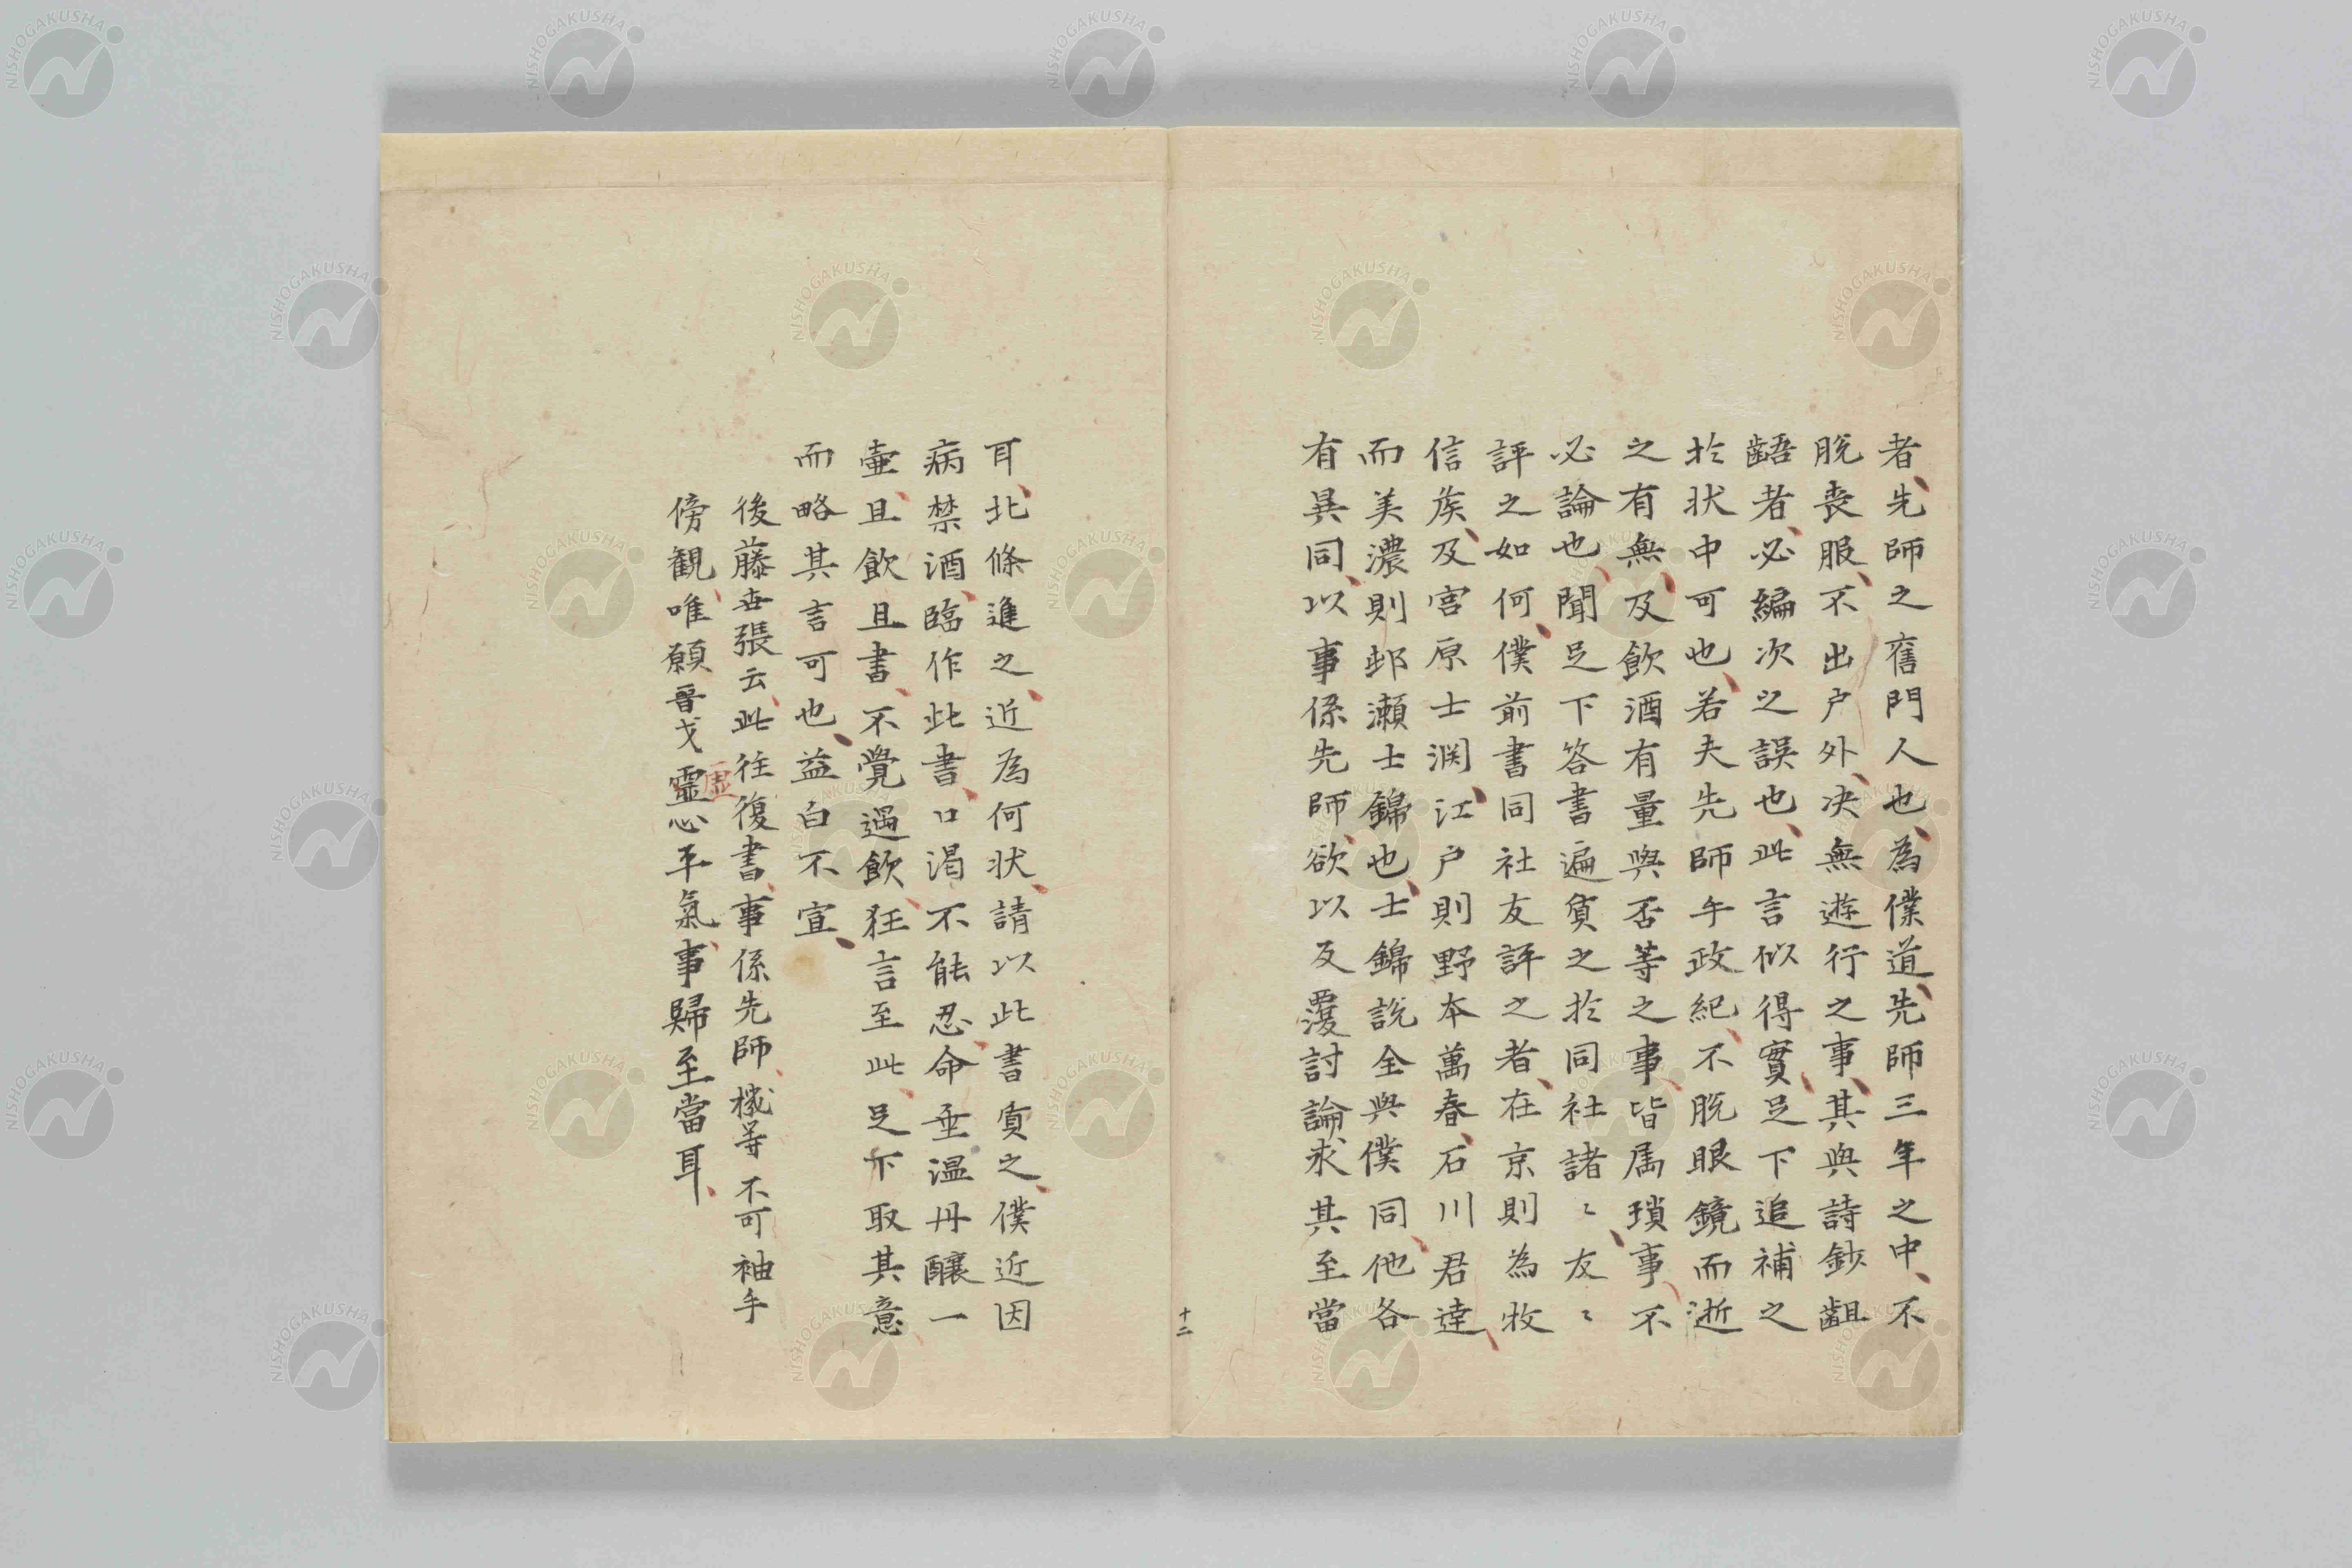 者、先師之舊門人也、為僕道、先師三年之中、不
脫喪服、不出户外、决無遊行之事、其與詩鈔齟
齬者、必編次之誤也、此言似得實、足下追補之
於状中可也、若夫先師午政紀、不脫眼鏡而逝
之有無、及飲酒有量與否等之事、皆属瑣事、不
必論也、聞足下答書遍質之於同社諸〻友〻
評之如何、僕前書同社友評之者、在京則為牧
信矦、及宮原士渕、江户則野本萬春、石川君達、
而美濃則邨瀬士錦也、士錦說全與僕同、他各
有異同、以事係先師、欲以反覆討論求其至當
十二
耳、北條進之、近為何状、請以此書質之、僕近因
病禁酒、臨作此書、口渇不能忍、命垂温丹醸一
壷、且飲且書、不覺過飲、狂言至此、足下取其意
而略其言可也、益白不宣、
後藤世張云、此往復書、事係先師、機等不可袖手
傍観、唯願吾戈靈心平氣、事歸至當耳、
虚
NISHOGAKUSHA